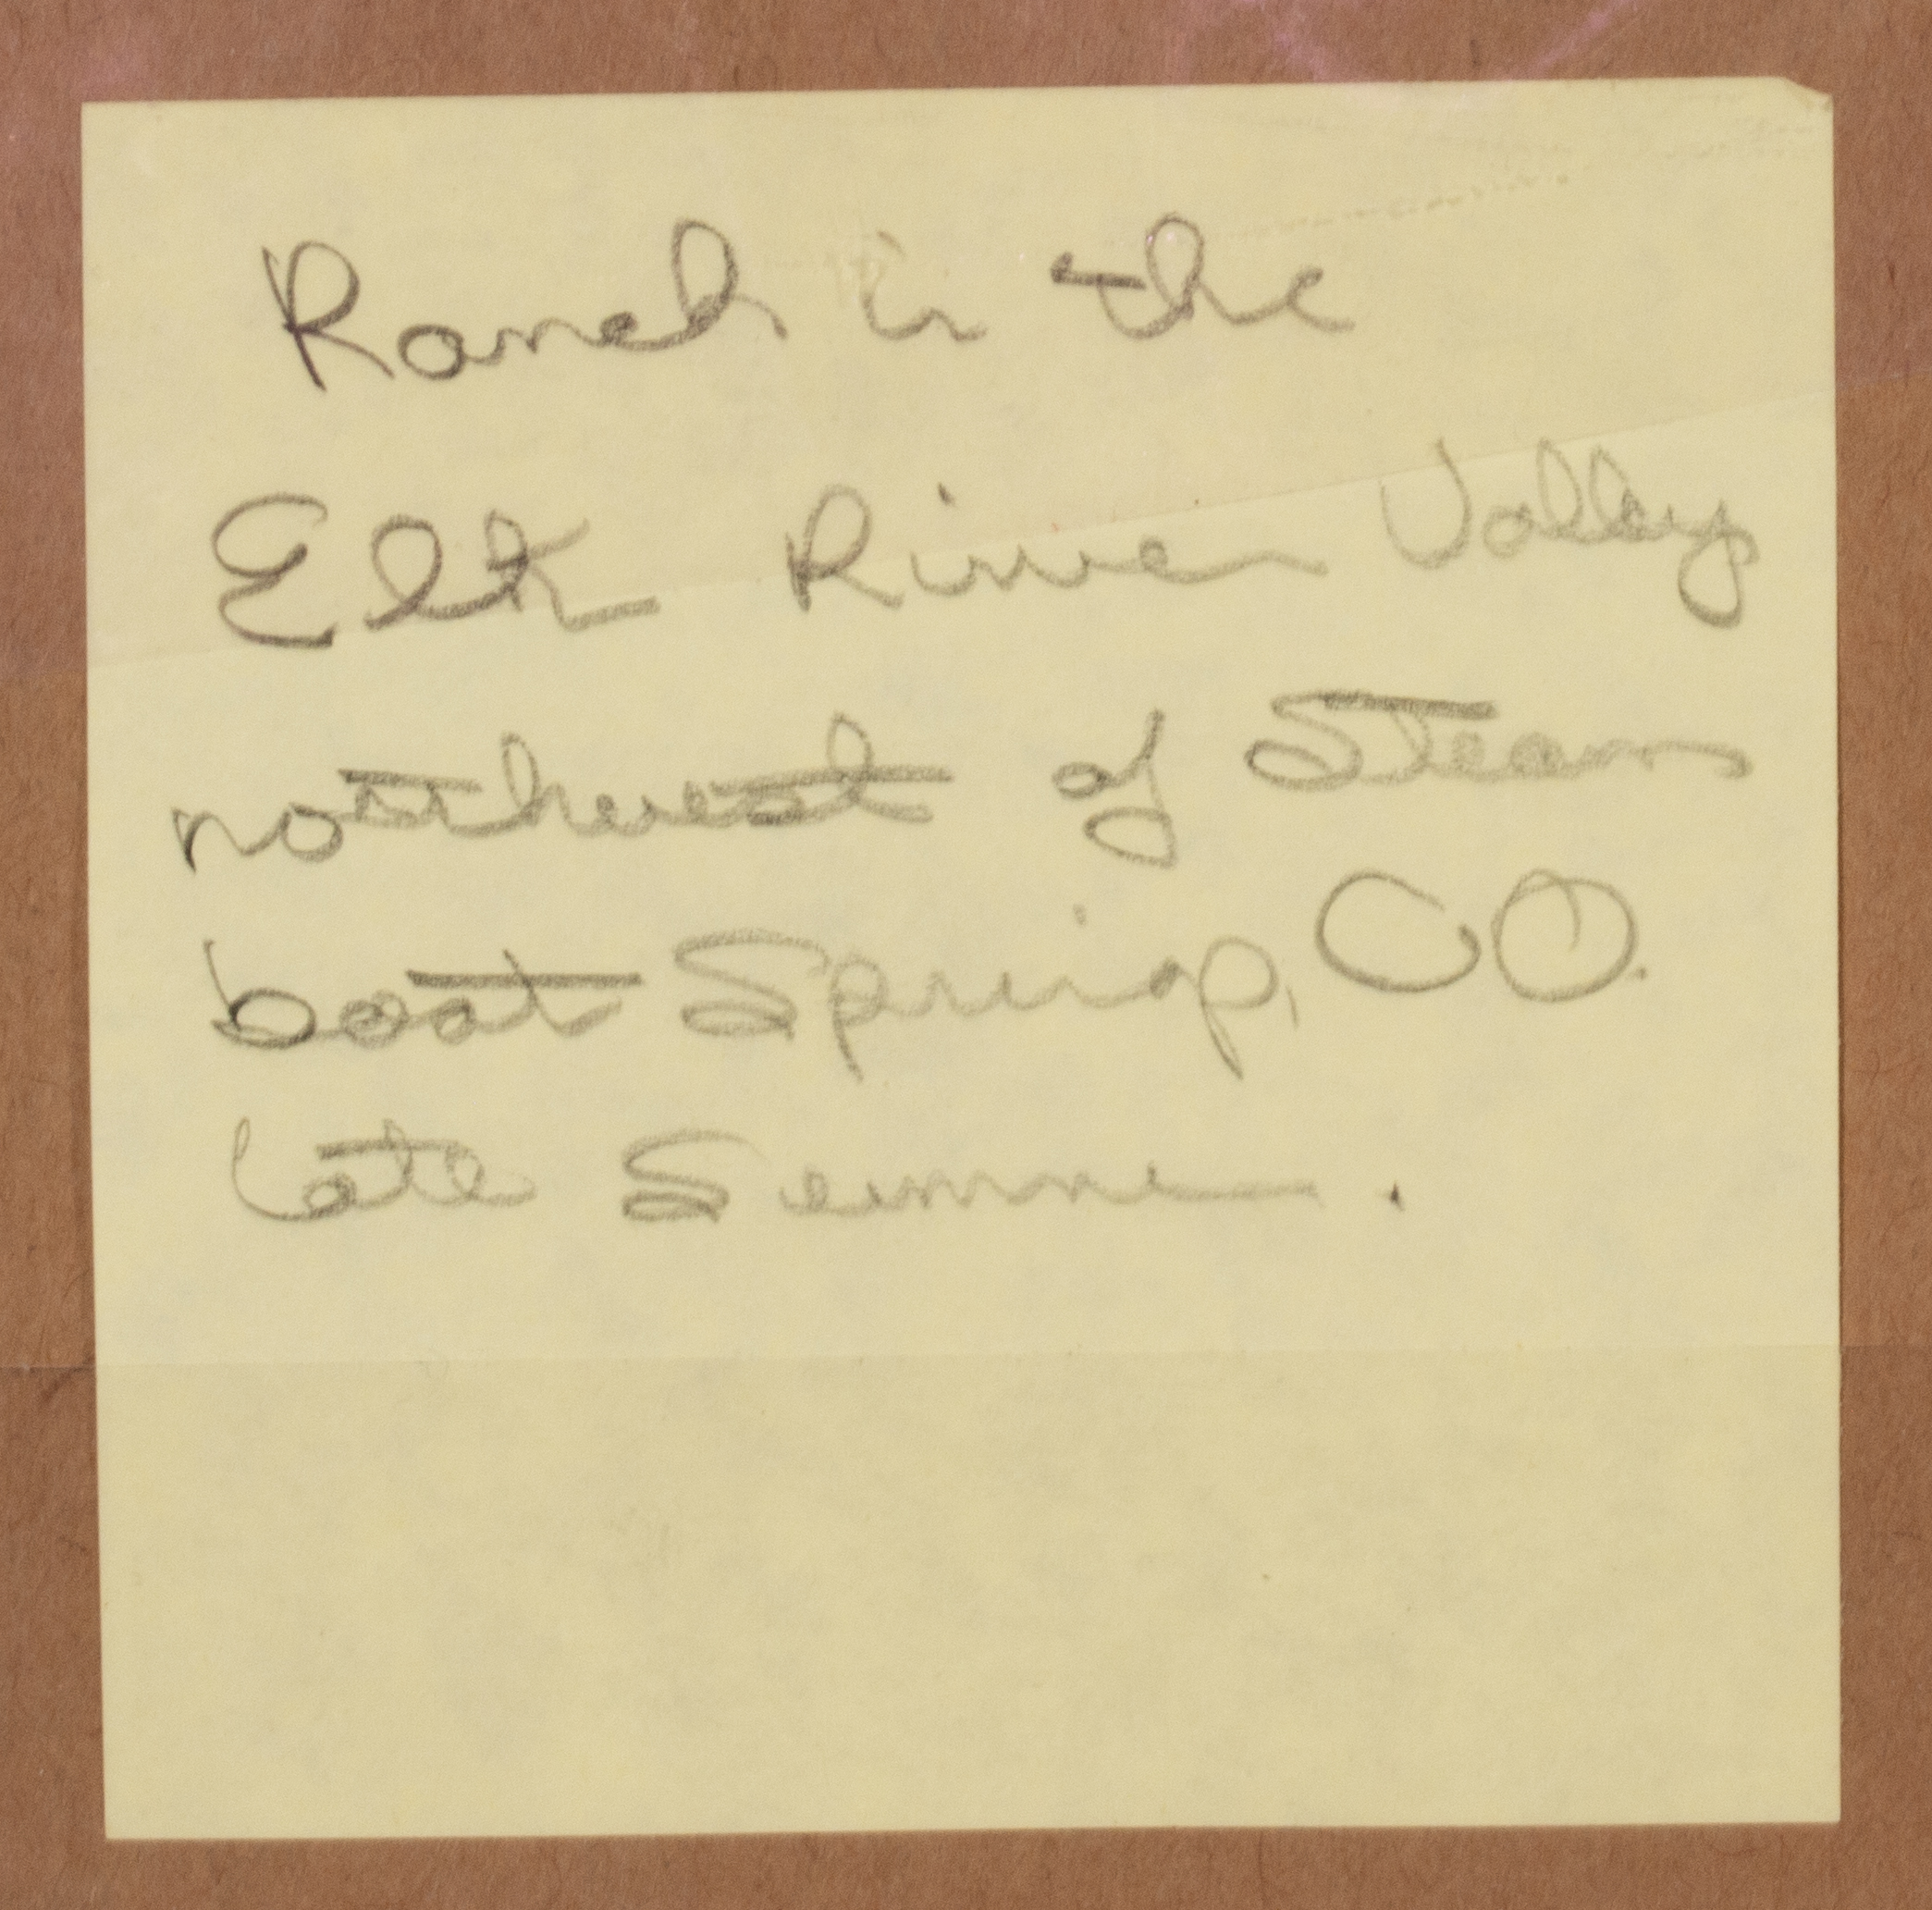 Ranch in the
Elk River Valley
northwest of Steam
boat Springs, CO.
Late Summer.